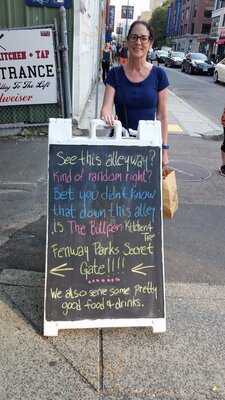 KITCHEN + TAP
ENTRANCE
Alley To The Left
Budweiser
See this alleyway?
Kind of random right?
Bet you didn't know
that down this alley
is The Bullpen Kitchen +
Tap
Fenway Parks Secret
Gate!!!!
We also serve some pretty
good food & drinks.